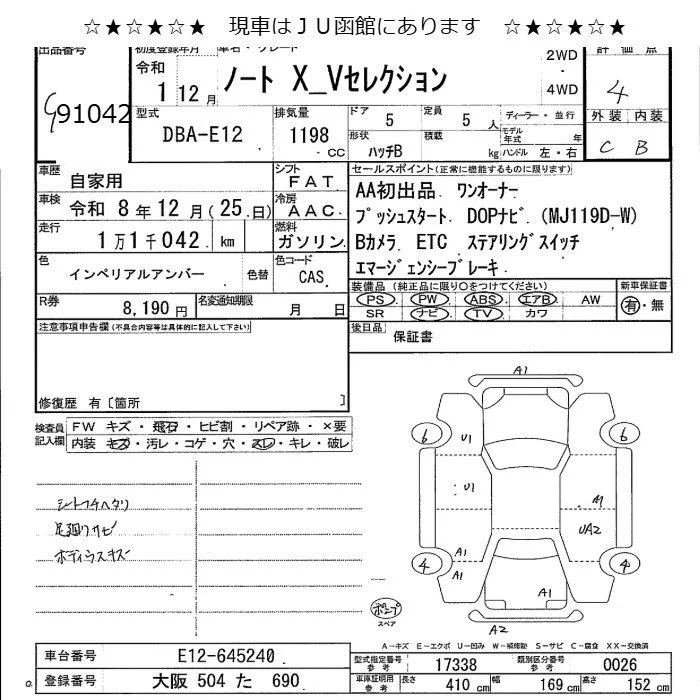 ☆★☆★☆★ 現車はＪＵ函館にあります ☆★☆★☆★
出品番号 初度登録年月 車名・グレード 評価点
91042
令和 1 12月
ノート X_Vセレクション
2WD・4WD
4
型式 DBA-E12
排気量 1198 CC
ドア 5
定員 5 人
形状 ハッチB
積載 kg
ディーラー・並行
モデル年式 年
ハンドル 左・右
外装 内装
C B
車歴 自家用
シフト FAT
車検 令和 8年12月(25.日)
冷房 AAC
走行 1万1千042. km
燃料 ガソリン
色 インペリアルアンバー 色替
色コード CAS
R券 8,190 円
名変通知期限 月 日
セールスポイント(正常に機能するものに限ります)
AA初出品 ワンオーナー
プッシュスタート DOPナビ(MJ119D-W)
Bカメラ ETC ステアリングスイッチ
エマージェンシーブレーキ
装備品(純正品に限り○をつけてください) 新車保証書
PS PW ABS エアB AW 有・無
SR ナビ TV カワ
後日品 保証書
注意事項申告欄(不具合内容等は具体的に記入して下さい)
修復歴 有〔箇所 〕
検査員記入欄
FW キズ・飛石・ヒビ割・リペア跡・×要
内装 キズ・汚レ・コゲ・穴・スレ・キレ・破レ
シートフチヘタリ
足廻りサビ
ボディウスキズ
A1
6 U1 6
U1 A1
UA2
A1
4 A1 A1 4
A2
スペア
A－キズ E－エクボ U－凹み W－補修跡 S－サビ C－腐食 XX－交換済
車台番号 E12-645240
登録番号 大阪 504 た 690
型式指定番号 参考 17338
類別区分番号 参考 0026
車庫証明用 参考 長さ 410 cm 幅 169 cm 高さ 152 cm